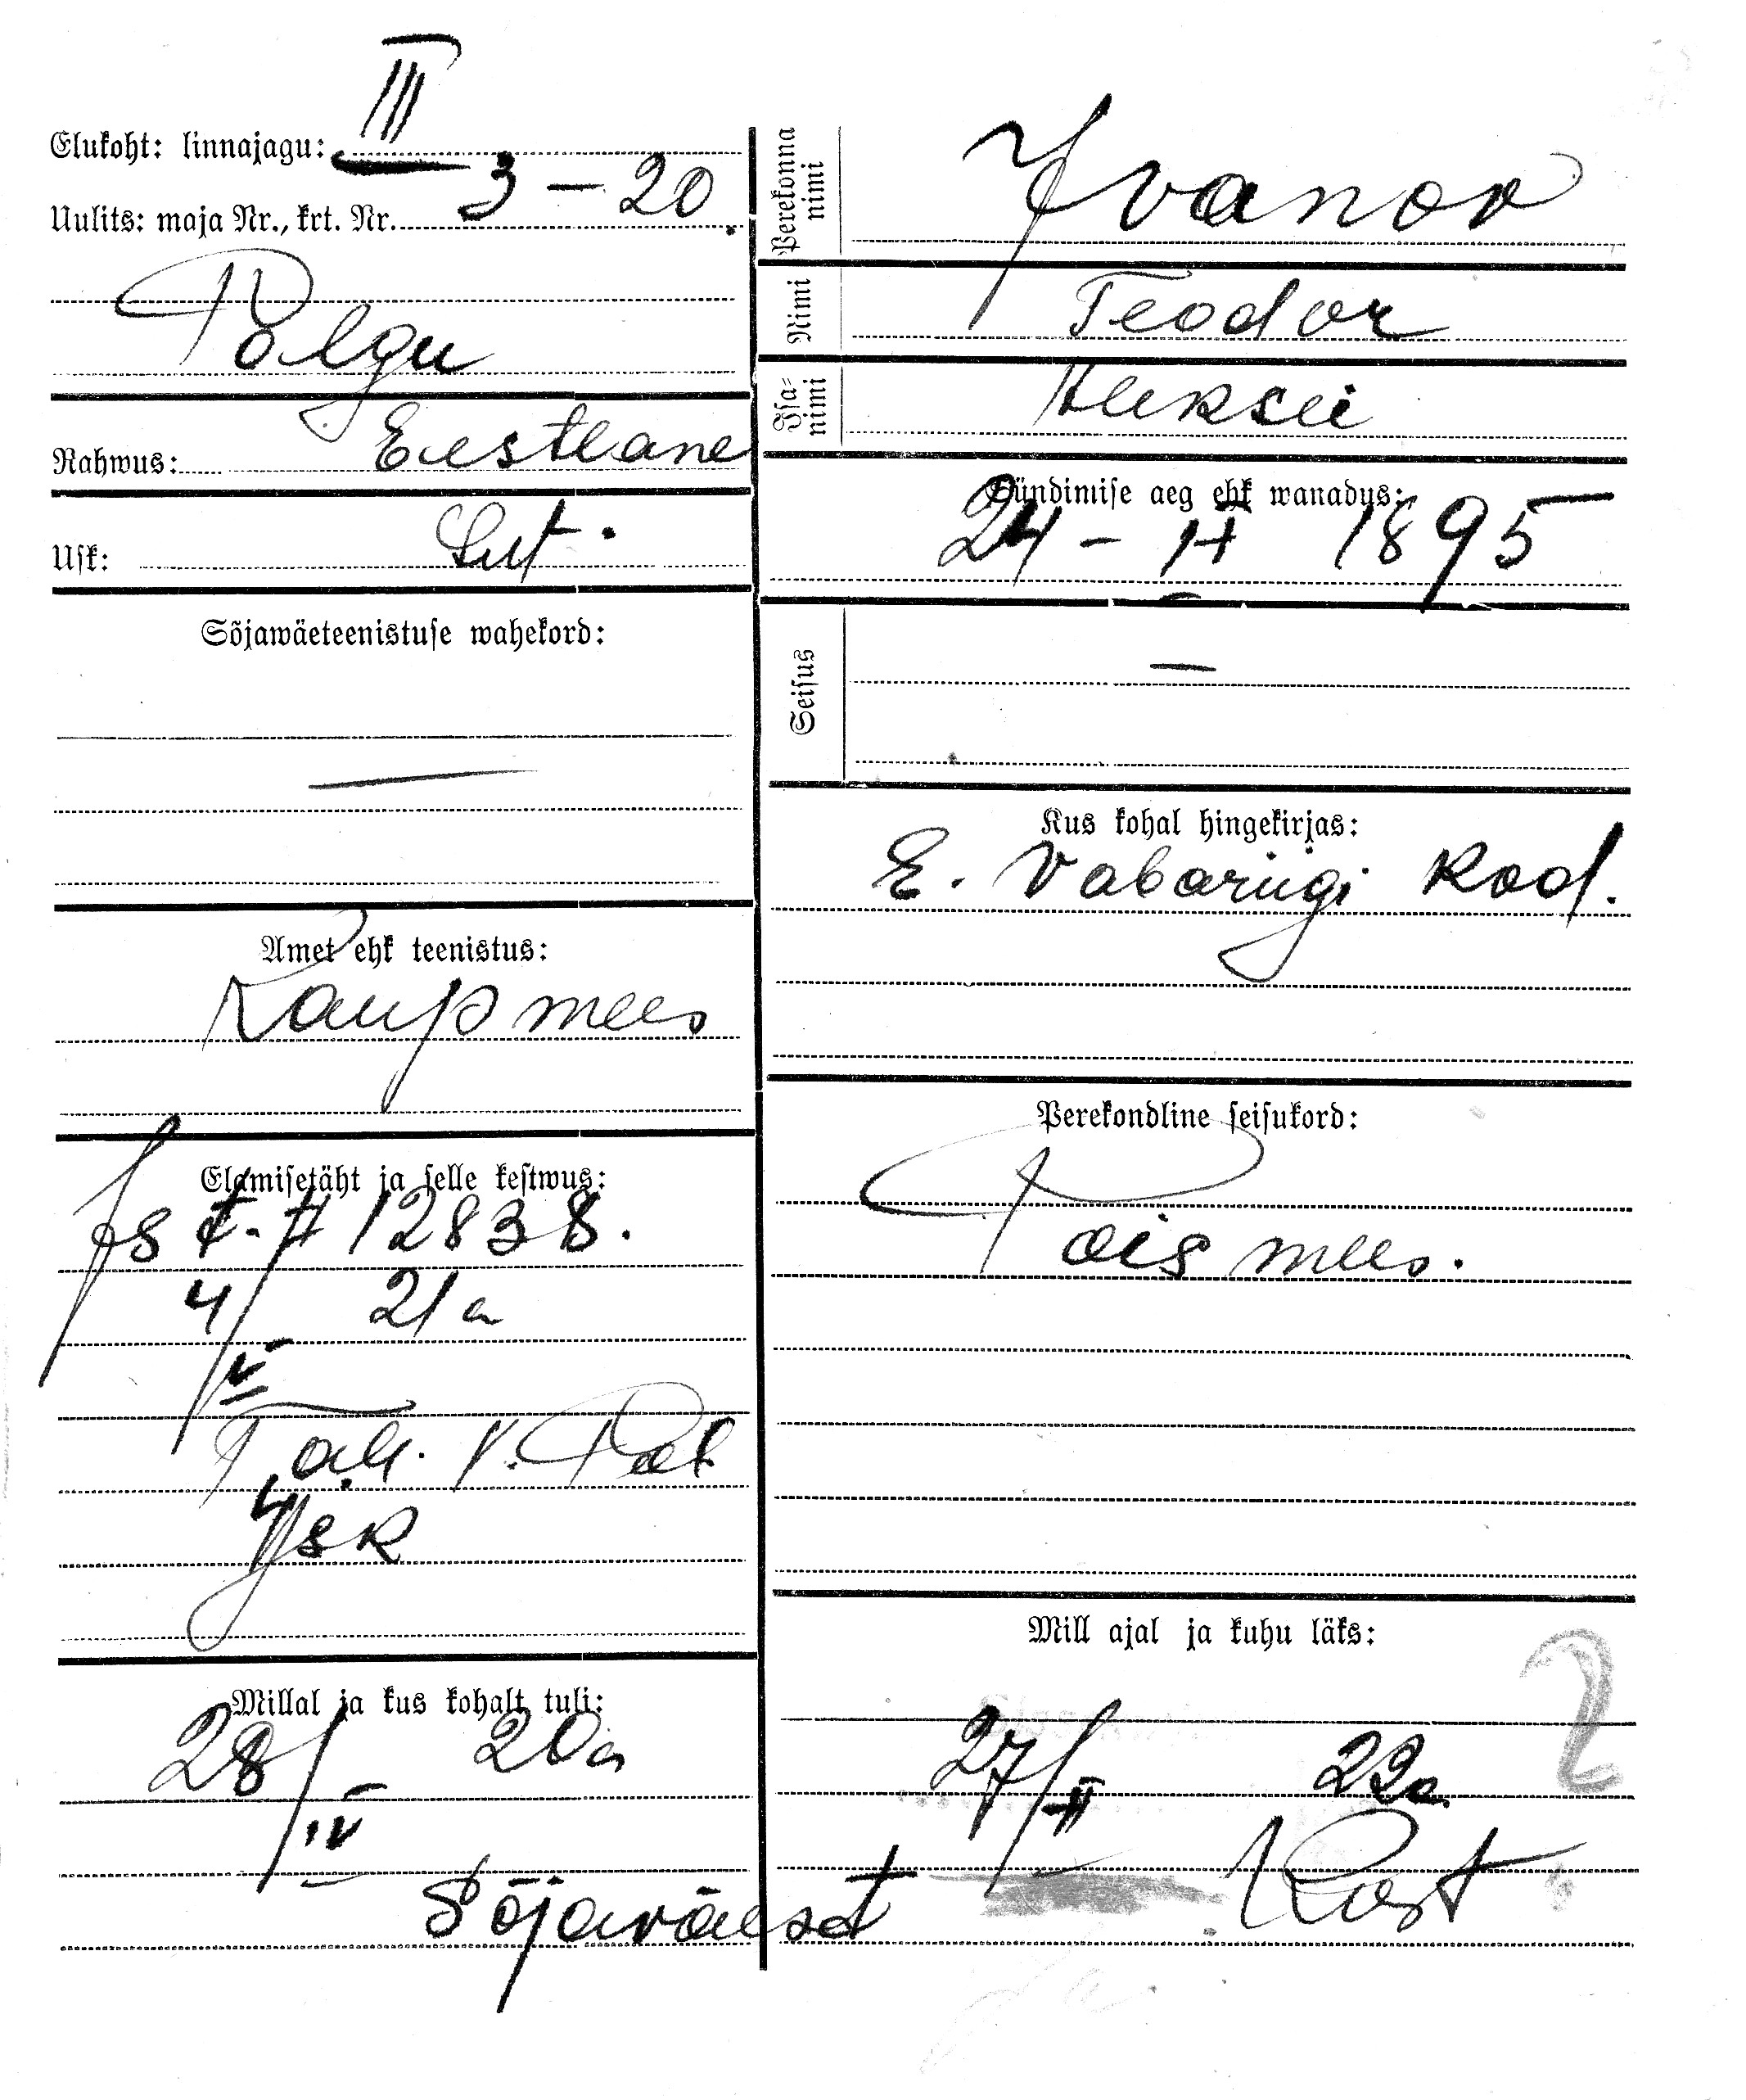 Elukoht: linnajagu: III
Uulits: maja Nr., krt. Nr. 3 – 20
Põlgu
Rahwus: Eestlane
Usk: Lut.
Sõjawäeteenistuse wahekord:
—
Amet ehk teenistus:
Kaupmees
Elamisetäht ja selle kestwus:
12838.
4/V 21 a
Tall. V. Pol
Jsk
Millal ja kus kohalt tuli:
28/IV 20 a
Sõjaväest
Perekonna nimi
Ivanov
Nimi
Teodor
Isa-nimi
Aleksei
Sündimise aeg ehk wanadus:
24 – II 1895
Seisus
—
Kus kohal hingekirjas:
E. Vabariigi Kod.
Perekondline seisukord:
Poismees.
Mill ajal ja kuhu läks:
2
27/II 22a.